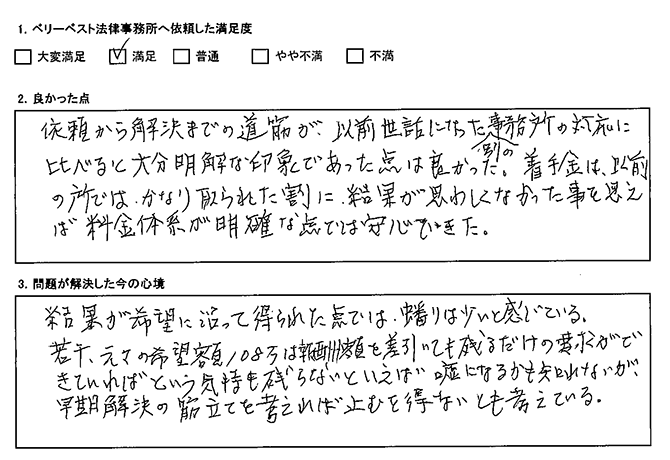 1. ベリーベスト法律事務所へ依頼した満足度
大変満足 満足 普通 やや不満 不満
2. 良かった点
依頼から解決までの道筋が、以前世話になった別の事務所の対応に
比べると大分明解な印象であった点は良かった。着手金は、以前
の所では、かなり取られた割に、結果が思わしくなかった事を思え
ば料金体系が明確な点では安心できた。
3. 問題が解決した今の心境
結果が希望に沿って得られた点では、蟠りは少いと感じている。
若干、元々の希望額108万は報酬額を差引いても残るだけの要求がで
きていればという気持も残らないといえば嘘になるかも知れないが、
早期解決の筋立てを考えれば止むを得ないとも考えている。